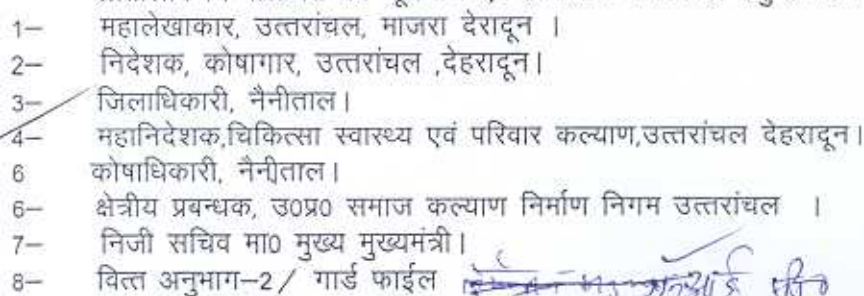 1– महालेखाकार, उत्तरांचल, माजरा देरादून ।
2– निदेशक, कोषागार, उत्तरांचल ,देहरादून।
3– जिलाधिकारी, नैनीताल।
4– महानिदेशक,चिकित्सा स्वारथ्य एवं परिवार कल्याण,उत्तरांचल देहरादून।
6 कोषाधिकारी, नैनीताल।
6– क्षेत्रीय प्रबन्धक, उ0प्र0 समाज कल्याण निर्माण निगम उत्तरांचल ।
7– निजी सचिव मा0 मुख्य मुख्यमंत्री।
8– वित्त अनुभाग–2/ गार्ड फाईल